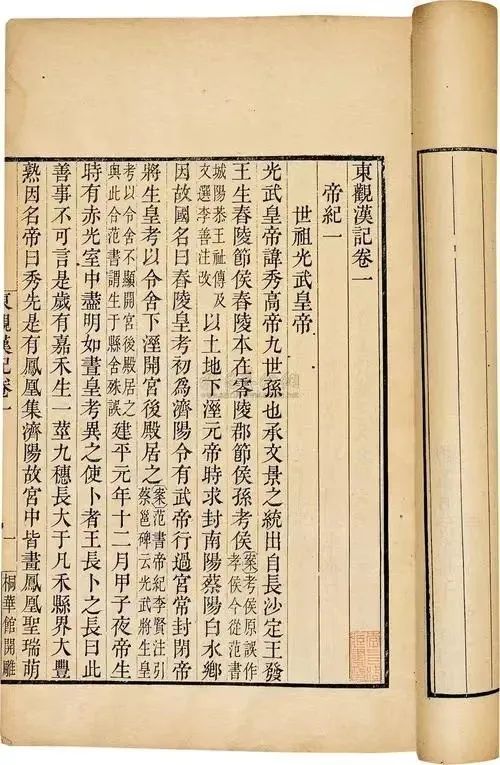 東觀漢記卷一
帝紀一
世祖光武皇帝
光武皇帝諱秀高帝九世孫也承文景之統出自長沙定王發
王生舂陵節侯舂陵本在零陵郡節侯孫考侯案考侯原誤作孝侯今從范書
城陽恭王祉傳及文選李善注改以土地下溼元帝時求封南陽蔡陽白水鄉
因故國名曰舂陵皇考初爲濟陽令有武帝行過宮常封閉帝
將生皇考以令舍下溼開宮後殿居之案范書帝紀李賢注引蔡邕碑云光武將生皇
考以令舍不顯開宮後殿居之與此合范書謂生于縣舍殊誤建平元年十二月甲子夜帝生
時有赤光室中盡明如晝皇考異之使卜者王長卜之長曰此
善事不可言是歲有嘉禾生一莖九穗長大于凡禾縣界大豐
熟因名帝曰秀先是有鳳凰集濟陽故宮中皆畫鳳凰聖瑞萌
東觀漢記卷一 一 桐華館開雕